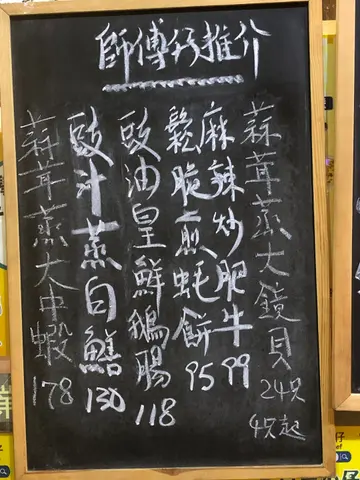 師傅仔推介
蒜茸蒸大鏡貝 24/只
4只起
麻辣炒肥牛 99
鬆脆煎蚝餅 95
豉油皇鮮鵝腸 118
豉汁蒸白鱔 130
蒜茸蒸大中蝦 178